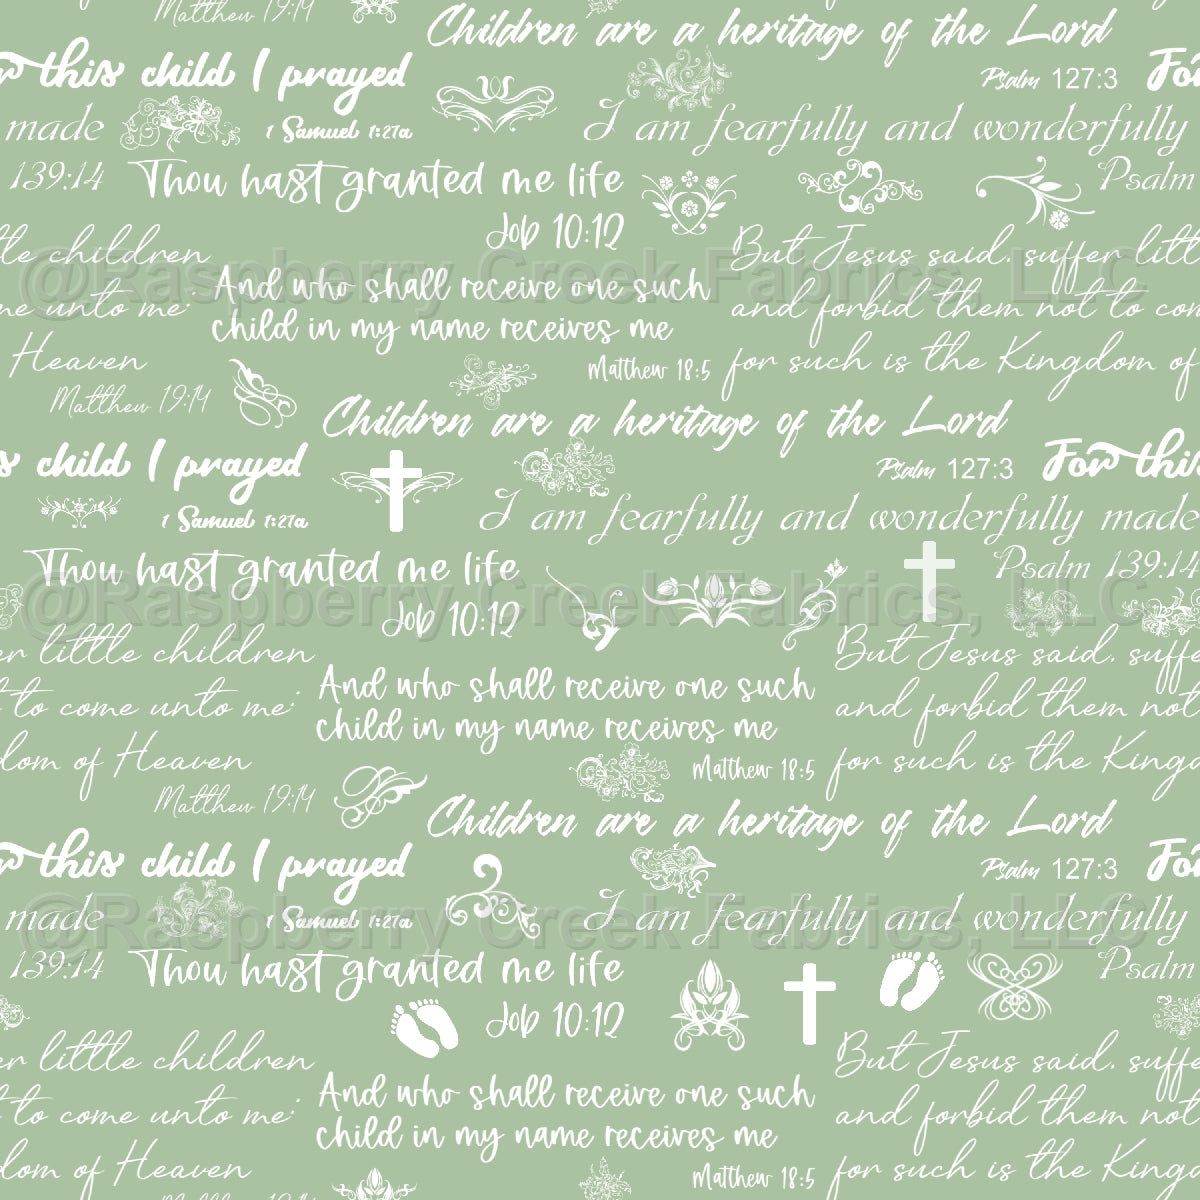 Matthew 19:14
Children are a heritage of the Lord
this child I prayed
Psalm 127:3
For
made
1 Samuel 1:27a
I am fearfully and wonderfully
139:14
Thou hast granted me life
Psalm
Job 10:12
children
But Jesus said, suffer
@Raspberry Creek Fabrics, LLC
And who shall receive one such
me unto me:
and forbid them not to
child in my name receives me
Heaven
Matthew 18:5
for such is the Kingdom of
Matthew 19:14
Children are a heritage of the Lord
child I prayed
Psalm 127:3
For this
1 Samuel 1:27a
I am fearfully and wonderfully made
Thou hast granted me life
Psalm 139:14
@Raspberry Creek Fabrics, LLC
Job 10:12
little children
But Jesus said, suffe
And who shall receive one such
to come unto me:
and forbid them not
child in my name receives me
dom of Heaven
Matthew 18:5
for such is the Kingd
Matthew 19:14
Children are a heritage of the Lord
this child I prayed
Psalm 127:3
For
made
1 Samuel 1:27a
I am fearfully and wonderfully
@Raspberry Creek Fabrics, LLC
139:14
Thou hast granted me life
Psalm
Job 10:12
little children
But Jesus said, suffe
And who shall receive one such
to come unto me:
and forbid them not
child in my name receives me
dom of Heaven
Matthew 18:5
for such is the Kingd